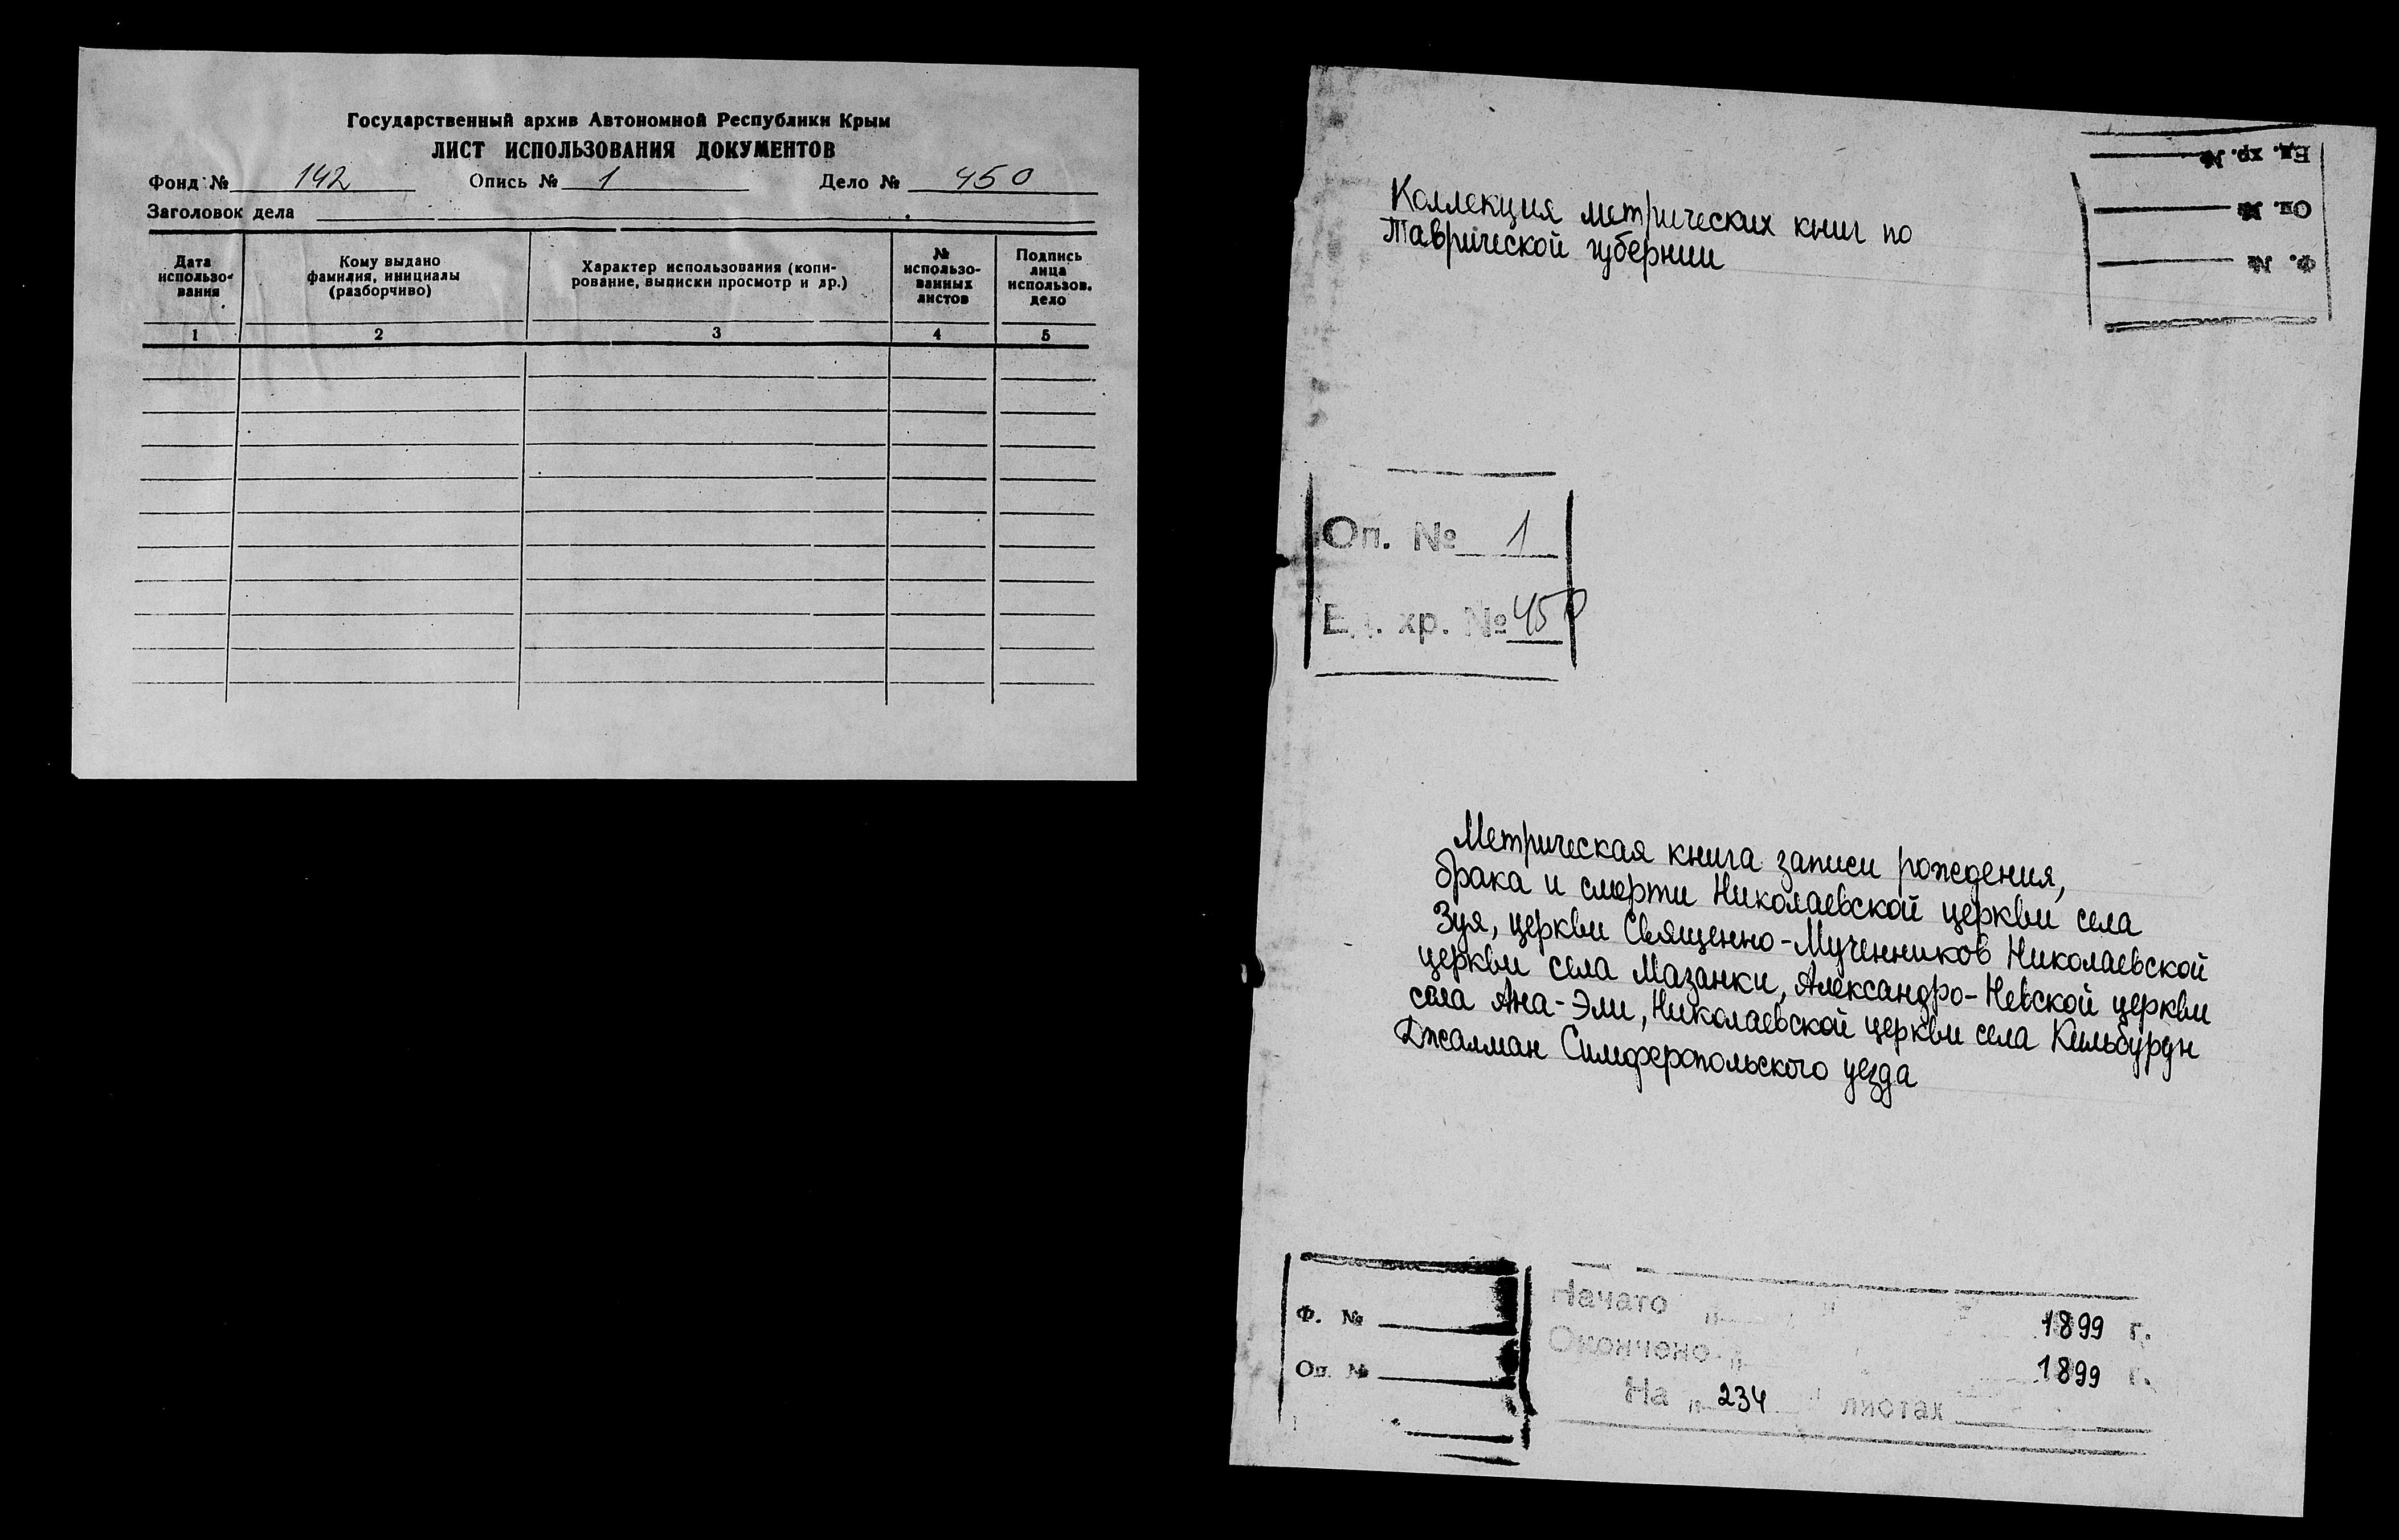 Государственный архив Автономной Республики Крым
ЛИСТ ИСПОЛЬЗОВАНИЯ ДОКУМЕНТОВ
Фонд № 142 Опись № 1 Дело № 450
Заголовок дела
Дата использо-вания
Кому выдано фамилия, инициалы (разборчиво)
Характер использования (копи-рование, выписки просмотр и др.)
№ использо-ванных листов
Подпись лица использов. дело
1 2 3 4 5
Ед. хр. №
Оп. №
Ф. №
Коллекция метрических книг по
Таврической губернии
Оп. № 1
Ед. хр. № 450
Метрическая книга записи рождения,
брака и смерти Николаевской церкви села
Зуя, церкви Священно-Мученников Николаевской
церкви села Мазанки, Александро-Невской церкви
села Ана-Эли, Николаевской церкви села Кильбурун
Джалман Симферопольского уезда
Ф. №
Оп. №
Начато " " 1899 г.
Окончено " 1899 г.
На " 234 " листах